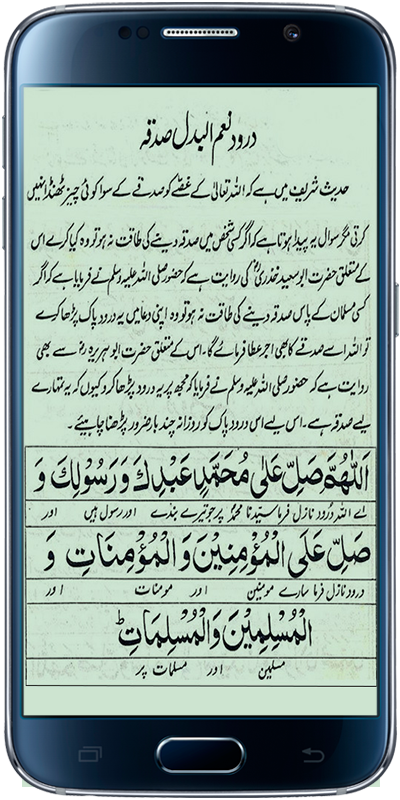 درود نعم البدل صدقہ
حدیث شریف میں ہے کہ اللہ تعالیٰ کے غصے کو صدقے کے سوا کوئی چیز ٹھنڈا نہیں
کرتی مگر سوال یہ پیدا ہوتا ہے کہ اگر کسی شخص میں صدقہ دینے کی طاقت نہ ہو تو وہ کیا کرے اس
کے متعلق حضرت ابو سعید خدریؓ کی روایت ہے کہ حضور صلی اللہ علیہ وسلم نے فرمایا ہے کہ اگر
کسی مسلمان کے پاس صدقہ دینے کی طاقت نہ ہو تو وہ اپنی دعا میں یہ درود پاک پڑھا کرے
تو اللہ اسے صدقے کا بھی اجر عطا فرمائے گا۔ اس کے متعلق حضرت ابو ہریرہ رض سے بھی
روایت ہے کہ حضور صلی اللہ علیہ وسلم نے فرمایا کہ مجھ پر یہ درود پڑھا کرو کیوں کہ یہ تمہارے
لیے صدقہ ہے۔ اس لیے اس درود پاک کو روزانہ چند بار ضرور پڑھنا چاہیئے۔
اَللّٰهُمَّ صَلِّ عَلٰى مُحَمَّدٍ عَبْدِكَ وَرَسُوْلِكَ وَ
اے اللہ درود نازل فرما سیدنا محمد پر جو تیرے بندے اور رسول ہیں اور
صَلِّ عَلَى الْمُؤْمِنِيْنَ وَالْمُؤْمِنَاتِ وَ
درود نازل فرما سارے مومنین اور مومنات اور
الْمُسْلِمِيْنَ وَالْمُسْلِمَاتِ ط
مسلمین اور مسلمات پر